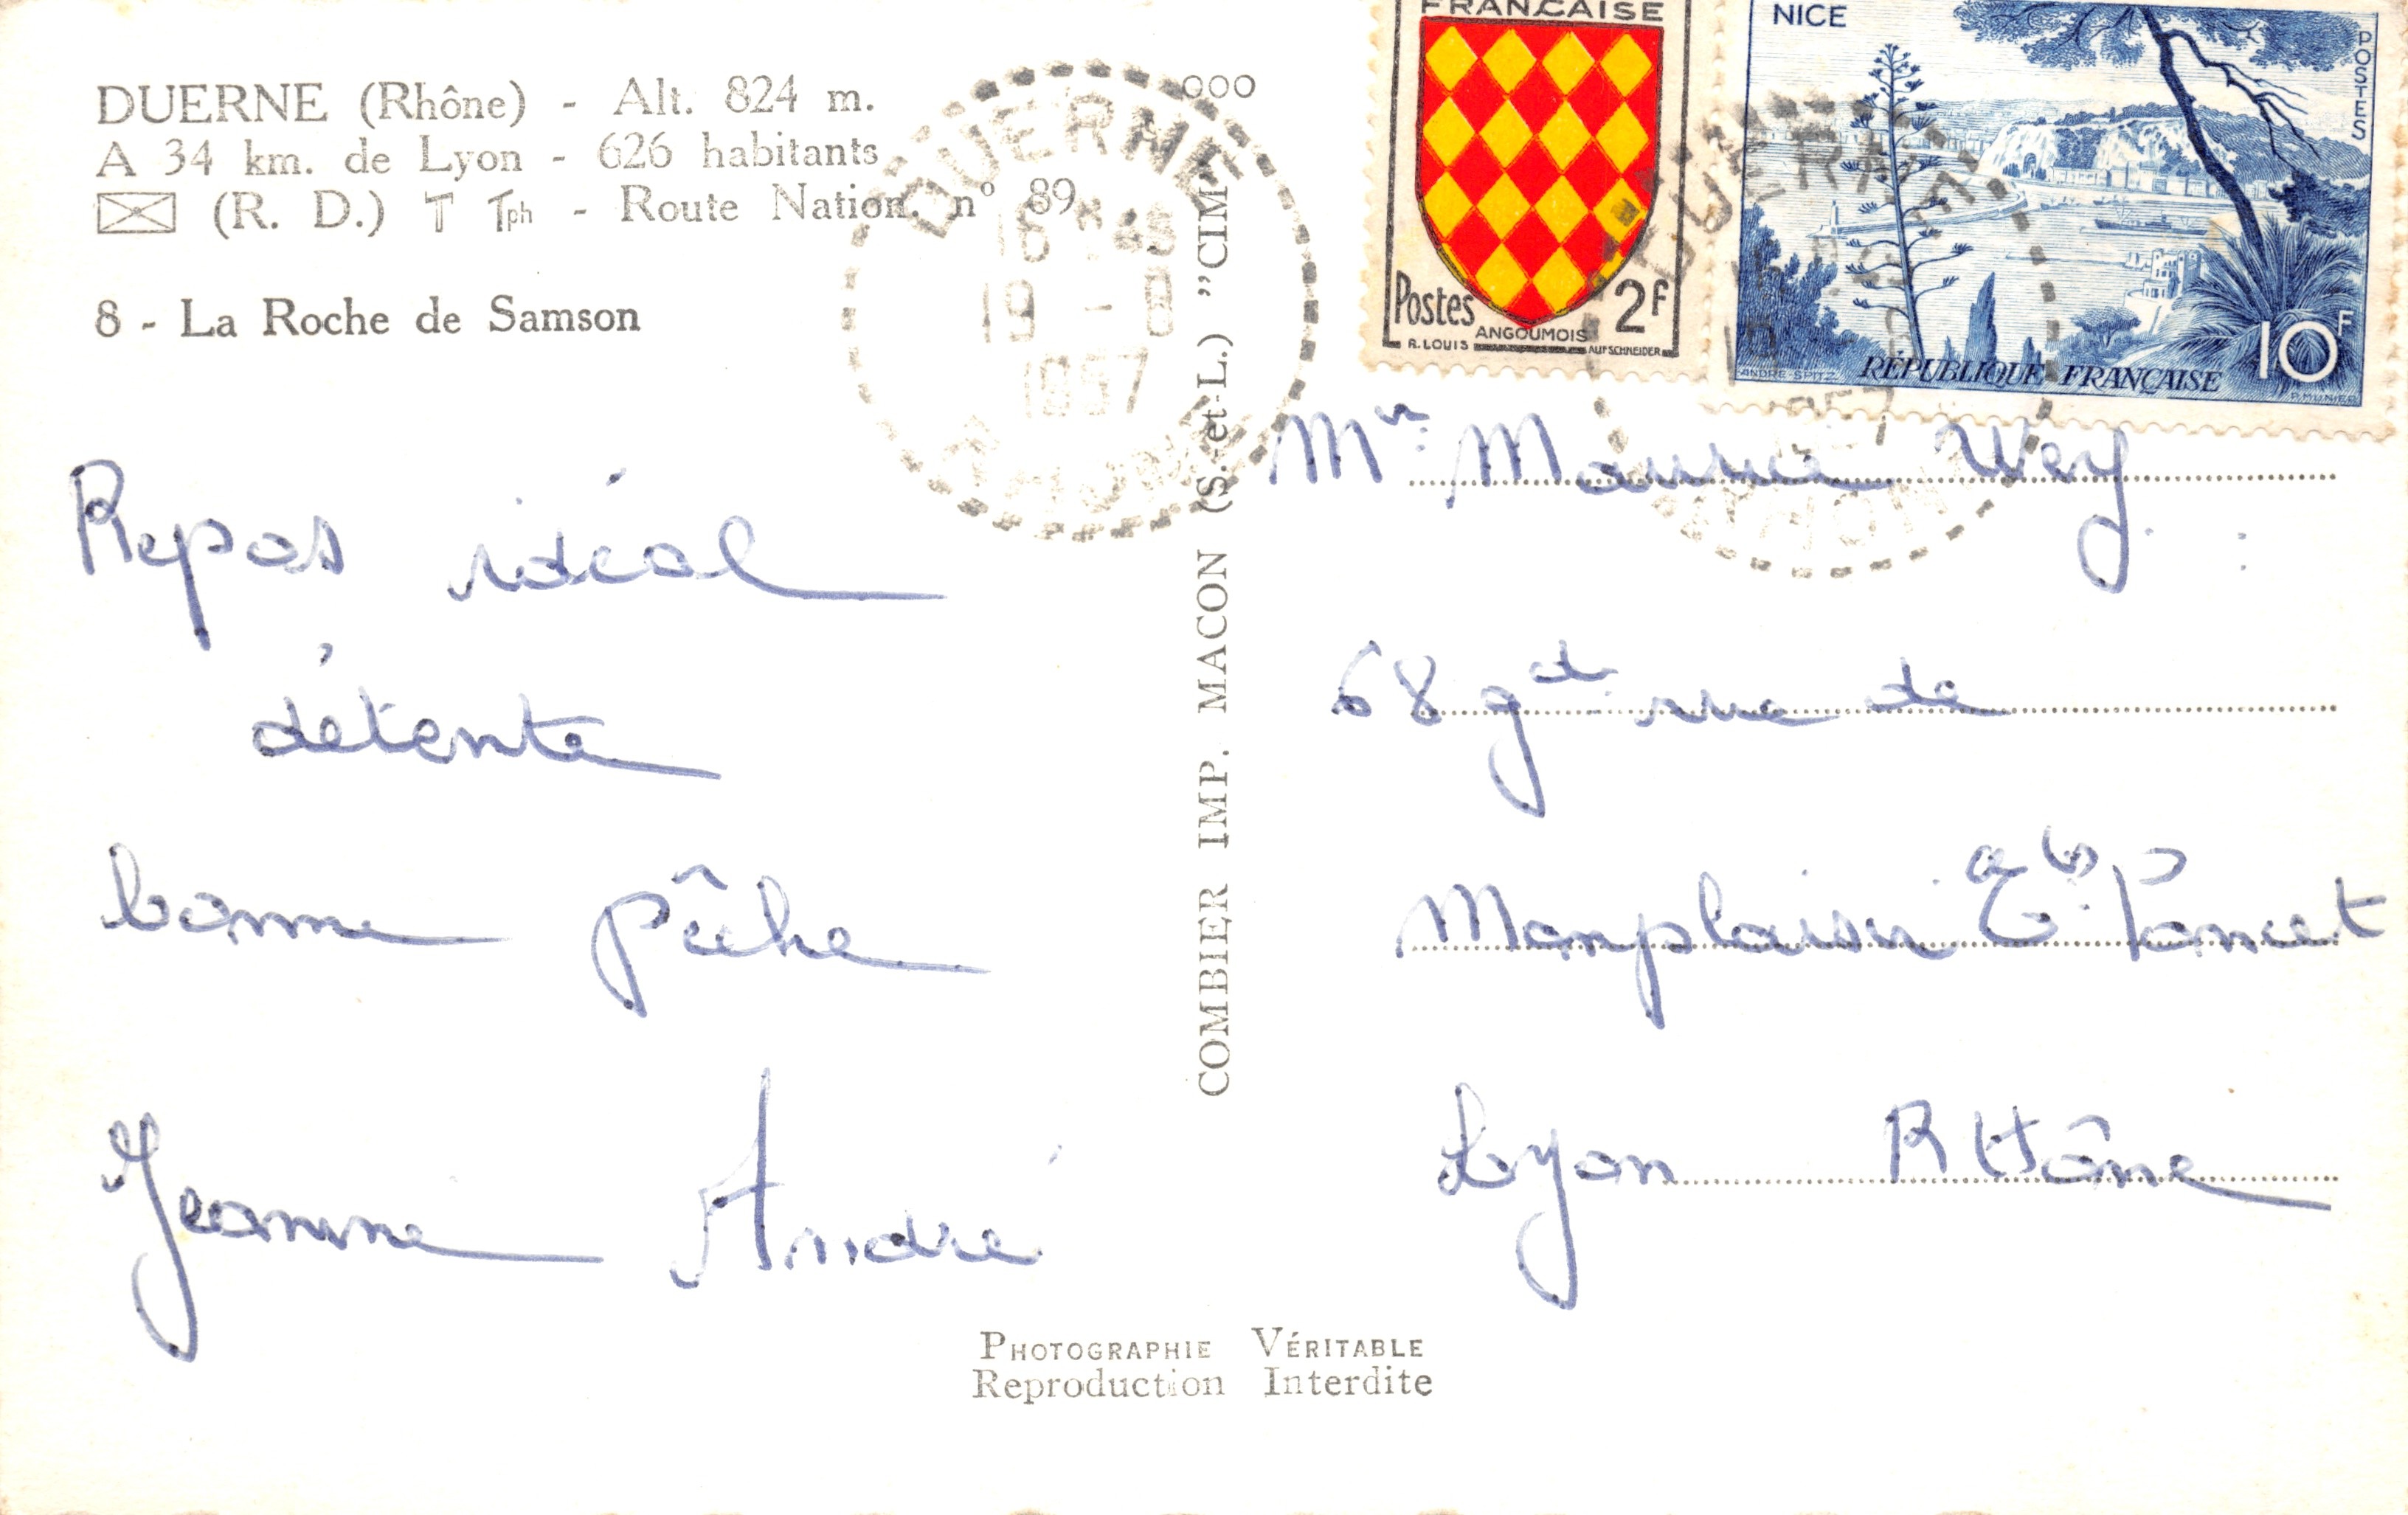 DUERNE (Rhône) - Alt. 824 m.
A 34 km. de Lyon - 626 habitants
(R. D.) T Tph - Route Nation. n° 89
8 - La Roche de Samson
DUERNE
16 H 45
19 - 8
1957
RHONE
ooo
COMBIER IMP. MACON (S.-et-L.) "CIM"
FRANÇAISE
Postes
2F
ANGOUMOIS
R. LOUIS
AUFSCHNEIDER
NICE
POSTES
10F
RÉPUBLIQUE FRANÇAISE
ANDRÉ-SPITZ
P. MUNIER
DUERNE
RHONE
Repos idéal
détente
bonne pêche
Jeannine André
Mr Maurice Wey
68 gd rue de
Monplaisir Ets Poncet
Lyon RHône
PHOTOGRAPHIE VÉRITABLE
Reproduction Interdite